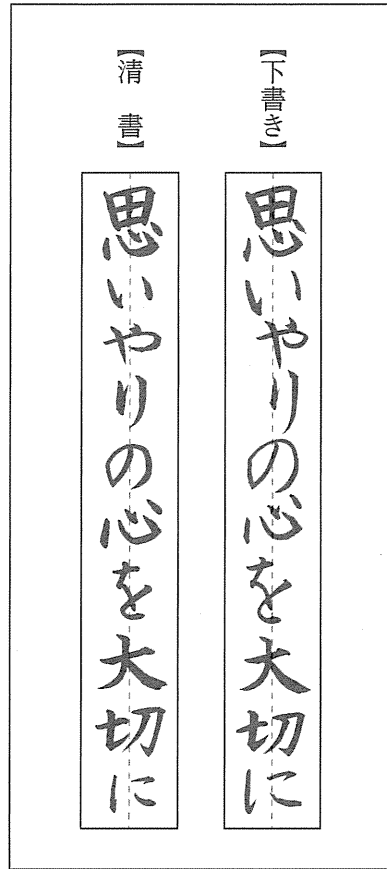 【下書き】
思いやりの心を大切に
【清書】
思いやりの心を大切に